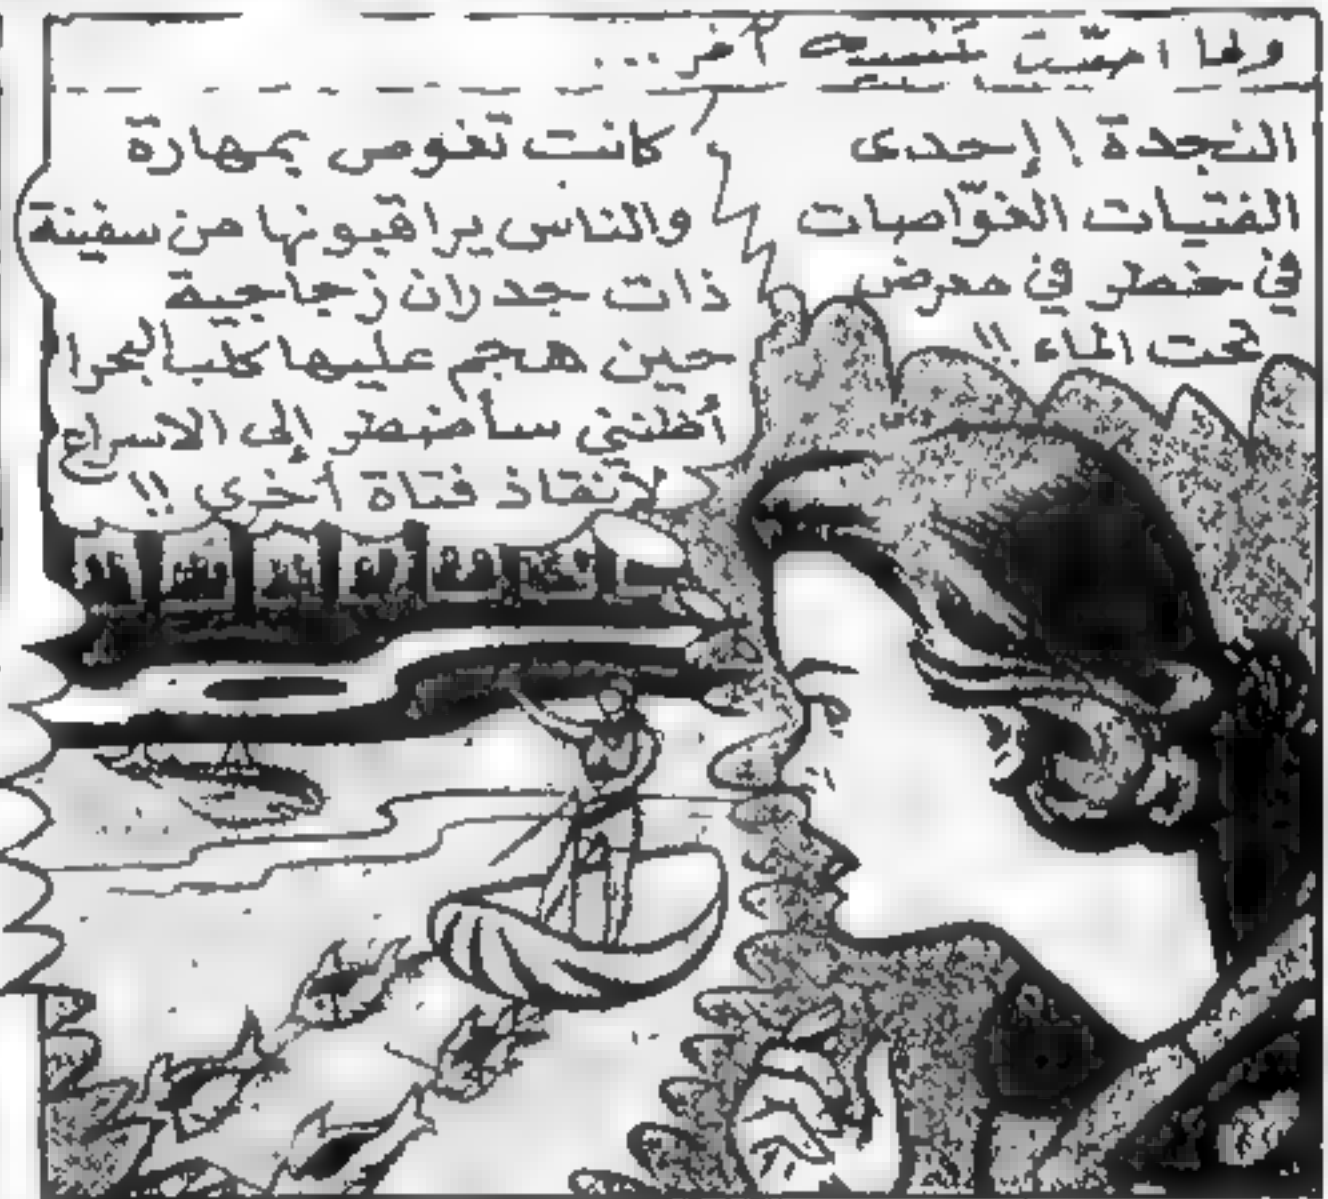 ولما احست تنفسه آخر...
النجدة ! إحدى
الفتيات الغوّاصات
في خطر في معرض
تحت الماء !!
كانت تغوص بمهارة
والناس يراقبونها من سفينة
ذات جدران زجاجية
حين هجم عليها كلب البحر !
أظنني سأضطر إلى الاسراع
لانقاذ فتاة أخرى !!